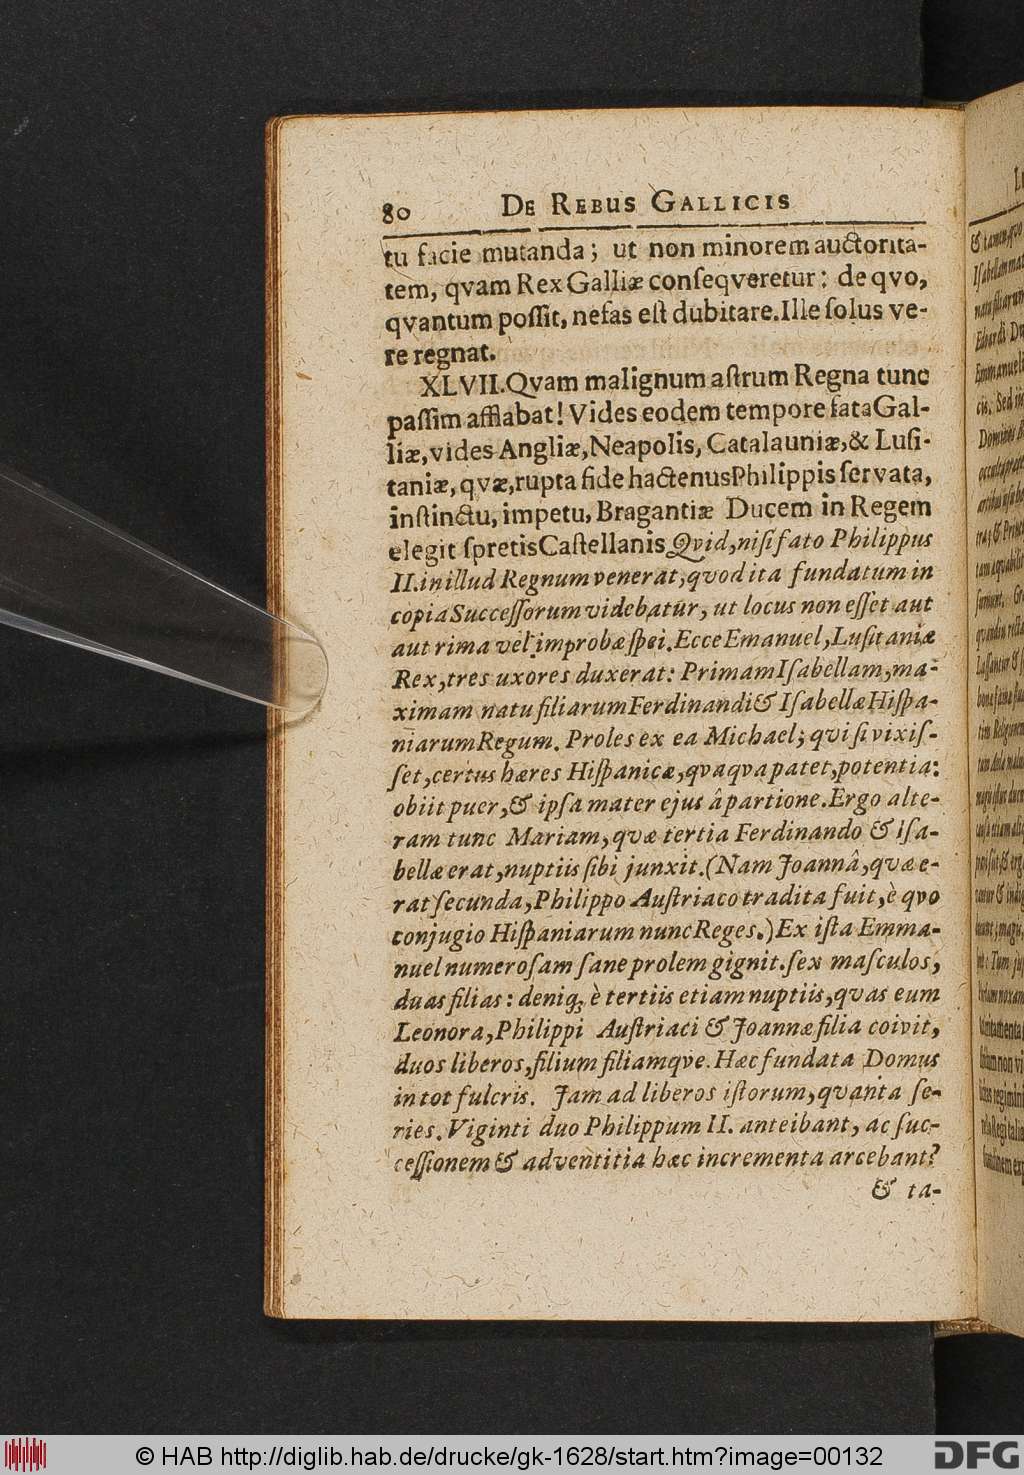 80 DE REBUS GALLICIS
tu facie mutanda; ut non minorem auctorita-
tem, qvam Rex Galliæ conſeqveretur: de qvo,
qvantum poſſit, nefas eſt dubitare. Ille ſolus ve-
re regnat.
XLVII. Qvam malignum aſtrum Regna tunc
paſſim afflabat! Vides eodem tempore fata Gal-
liæ, vides Angliæ, Neapolis, Catalauniæ, & Luſi-
taniæ, qvæ, rupta fide hactenus Philippis ſervata,
inſtinctu, impetu, Bragantiæ Ducem in Regem
elegit ſpretis Caſtellanis. Qvid, niſi fato Philippus
II. in illud Regnum venerat, qvod ita fundatum in
copia Succeſſorum videbatur, ut locus non eſſet aut
aut rima vel improbæ ſpei. Ecce Emanuel, Luſitaniæ
Rex, tres uxores duxerat: Primam Iſabellam, ma-
ximam natu filiarum Ferdinandi & Iſabellæ Hiſpa-
niarum Regum. Proles ex ea Michael; qvi ſi vixiſ-
ſet, certus hæres Hiſpanicæ, qvaqva patet, potentia:
obiit puer, & ipſa mater ejus â partione. Ergo alte-
ram tunc Mariam, qvæ tertia Ferdinando & Iſa-
bellæ erat, nuptiis ſibi junxit. (Nam Joannâ, qvæ e-
rat ſecunda, Philippo Auſtriaco tradita fuit, è qvo
conjugio Hiſpaniarum nunc Reges.) Ex iſta Emma-
nuel numeroſam ſane prolem gignit. ſex maſculos,
duas filias: deniqꝫ è tertiis etiam nuptiis, qvas eum
Leonora, Philippi Auſtriaci & Joannæ filia coivit,
duos liberos, filium filiamqve. Hæc fundata Domus
in tot fulcris. Jam ad liberos iſtorum, qvanta ſe-
ries. Viginti duo Philippum II. anteibant, ac ſuc-
ceſſionem & adventitia hæc incrementa arcebant?
& ta-
© HAB http://diglib.hab.de/drucke/gk-1628/start.htm?image=00132
DFG